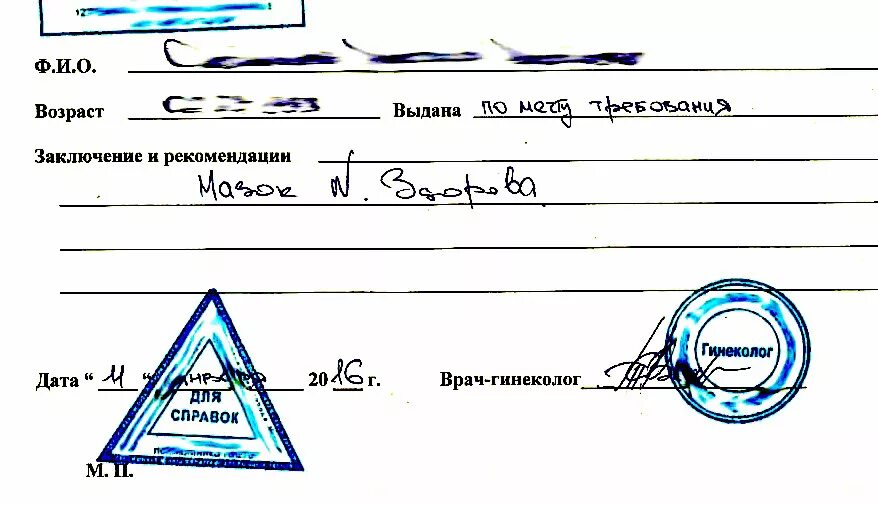 Ф.И.О.
Возраст Выдана по месту требования
Заключение и рекомендации
Мазок N. Здорова
Гинеколог
Дата “ 11 “ января 2016 г. Врач-гинеколог
ДЛЯ
СПРАВОК
М. П.